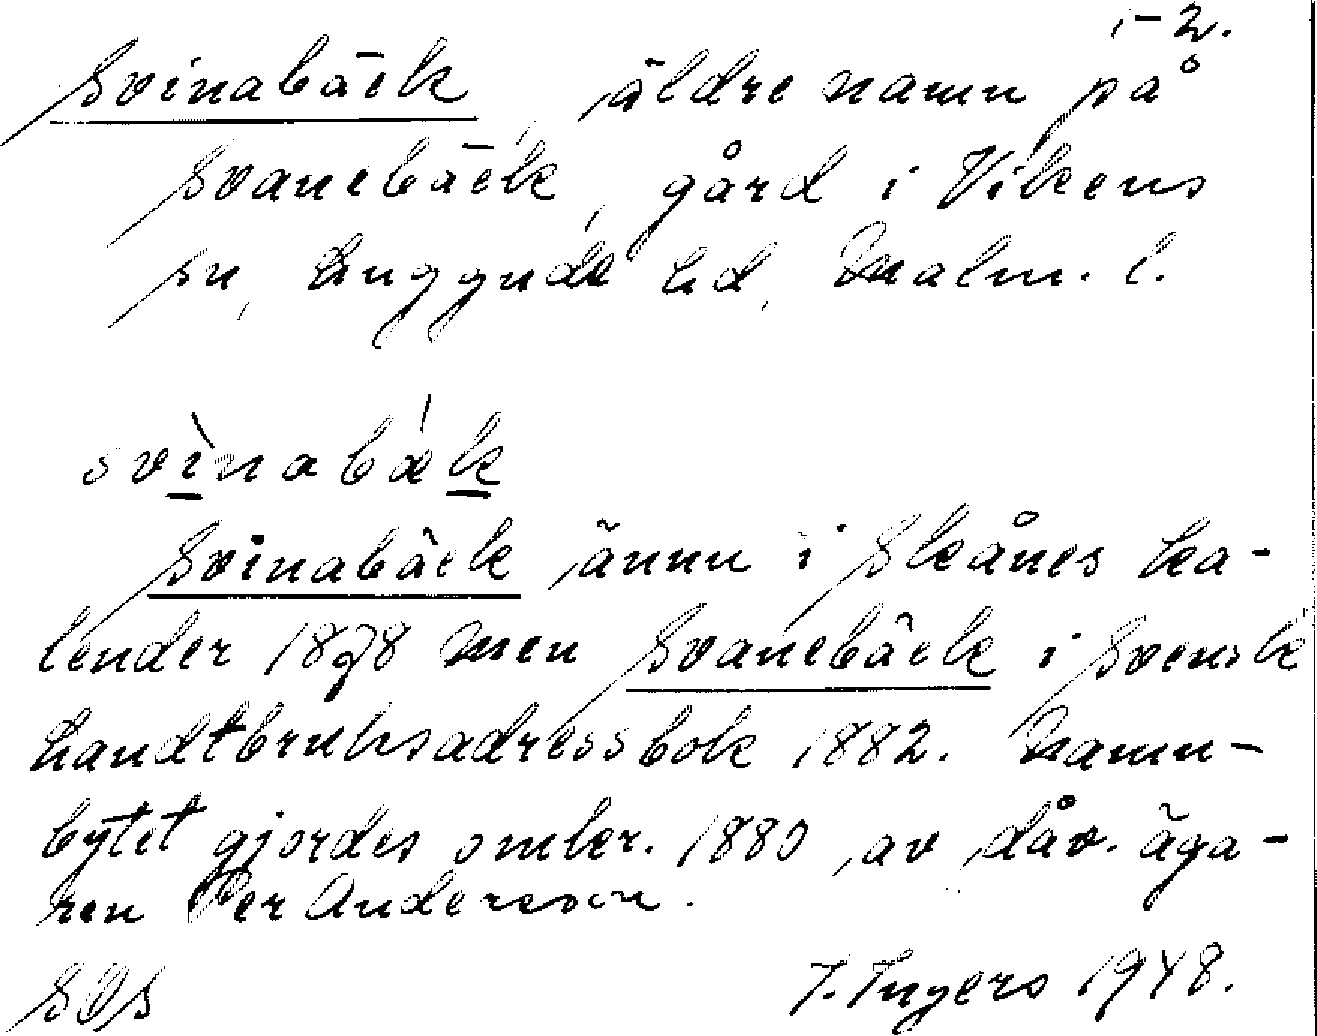 1-2.
Svinabäck, äldre namn på
Svanebäck, gård i Vikens
sn, Luggude hd, Malm. l.
svìnabǽk
Svinabäck ännu i Skånes ka-
lender 1878 men Svanebäck i Svensk
landtbruksadressbok 1882. Namn-
bytet gjordes omkr. 1880 av dåv. äga-
ren Per Andersson.
SOS
I. Ingers 1948.